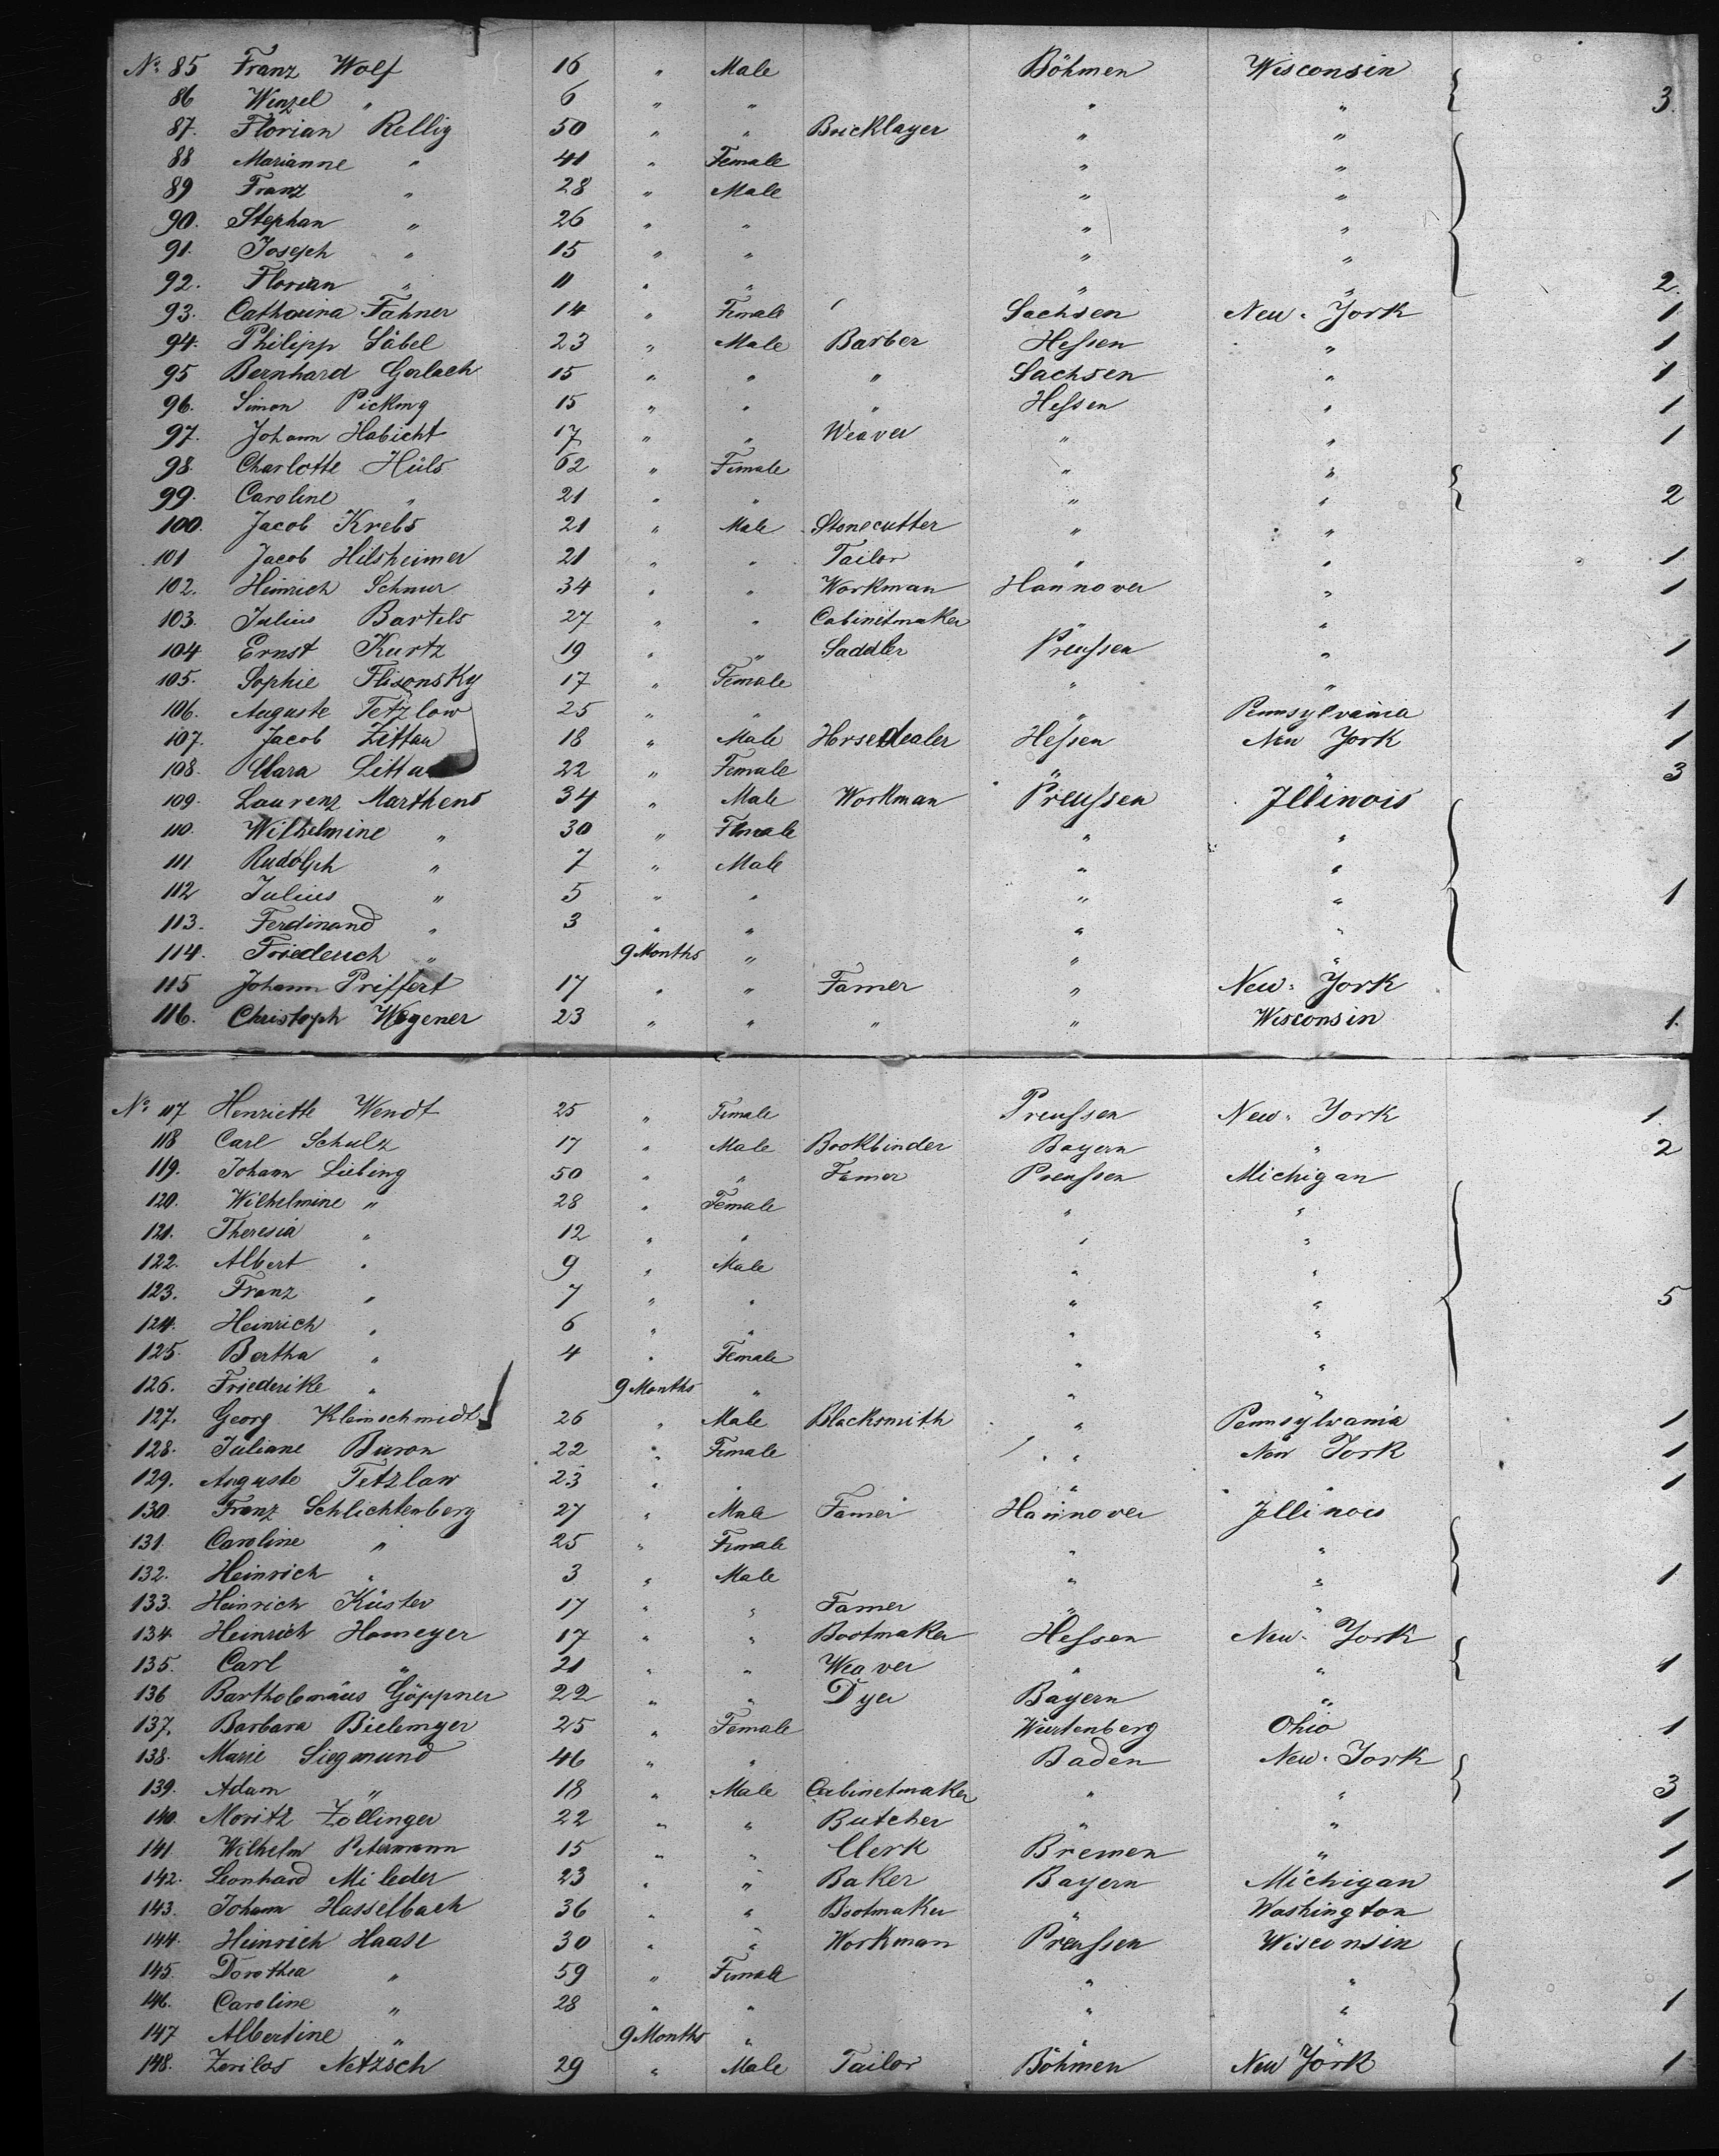 No. 85 Franz Wolf 16 " Male Böhmen Wisconsin
86 Winzel " 6 " " " " 3.
87. Florian Rellig 50 " " Bricklayer " "
88 Marianne " 41 " Female " "
89 Franz " 28 " Male " "
90. Stephan " 26 " " " "
91. Joseph " 15 " " " "
92. Florian " 11 " " " " 2.
93. Catharina Fahner 14 " Female Sachsen New-York 1
94. Philipp Säbel 23 " Male Barber Hessen " 1
95 Bernhard Gerlach 15 " " " Sachsen " 1
96. Simon Picking 15 " " " Hessen " 1
97. Johann Habicht 17 " " Weaver " " 1
98. Charlotte Hüls 62 " Female " "
99. Caroline " 21 " " " " 2
100. Jacob Krebs 21 " Male Stonecutter " "
101 Jacob Hilsheimer 21 " " Tailor " " 1
102. Heinrich Schnur 34 " " Workman Hannover " 1
103. Julius Bartels 27 " " Cabinetmaker " "
104 Ernst Kurtz 19 " " Saddler Preussen " 1
105. Sophie Flisonsky 17 " Female " "
106. Auguste Tetzlow 25 " " " Pennsylvania 1
107. Jacob Zittau 18 " Male Horsedealer Hessen New York 1
108. Clara 22 " Female " " 3
109. Laurenz Marthens 34 " Male Workman Preussen Illinois
110. Wilhelmine " 30 " Female " "
111 Rudolph " 7 " Male " "
112 Julius " 5 " " " " 1
113. Ferdinand " 3 " " " "
114. Friederich " 9 Months " " "
115 Johann Priffert 17 " " Famer " New-York
116. Christoph Wegener 23 " " " " Wisconsin 1.
No. 117 Henriette Wendt 25 " Female Preussen New-York 1.
118 Carl Schulz 17 " Male Bookbinder Bayern " 2
119. Johann Liebing 50 " " Famer Preussen Michigan
120. Wilhelmine " 28 " Female " "
121. Theresia " 12 " " " "
122. Albert " 9 " Male " "
123. Franz " 7 " " " " 5
124. Heinrich " 6 " " " "
125. Bertha " 4 " Female " "
126. Friederike " 9 Months " " "
127. Georg Kleinschmidt 26 " Male Blacksmith " Pennsylvania 1
128. Juliane Buron 22 " Female " New York 1
129. Auguste Tetzlaw 23 " " " " 1
130. Franz Schlichtenberg 27 " Male Famer Hannover Illinois
131. Caroline " 25 " Female " "
132. Heinrich " 3 " Male " " 1
133. Heinrich Küster 17 " " Famer " "
134. Heinrich Homeyer 17 " " Bootmaker Hessen New-York
135. Carl " 21 " " Weaver " " 1
136 Bartholomäus Göppner 22 " " Dyer Bayern "
137. Barbara Bielemyer 25 " Female Würtenberg Ohio 1
138. Marie Siegmund 46 " " Baden New-York
139. Adam " 18 " Male Cabinetmaker " " 3
140. Moritz Zollinger 22 " " Butcher " " 1
141 Wilhelm Petermann 15 " " Clerk Bremen " 1
142. Leonhard Mileder 23 " " Baker Bayern Michigan 1
143. Johann Hasselbach 36 " " Bootmaker " Washington
144. Heinrich Haase 30 " " Workman Preussen Wisconsin
145. Dorothea " 59 " Female " "
146. Caroline " 28 " " " " 1
147 Albertine " 9 Months " " "
148. Netzsch 29 " Male Tailor Böhmen New York 1